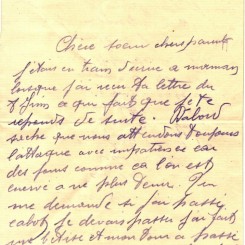 Chère soeur chers parents
j'étais en train d'ecrire a maman
lorsque j'ai recu ta lettre du
7 Juin ce qui fait que je te
reponds de suite. D'abord
sache que nous attendons toujours
l'attaque avec impatience car
des jours comme ca l'on est
enervé a ne plus tenir. Tu
me demande si j'ai passé
cabot je devais passer j'ai fait
une bêtise et mon tour a passé